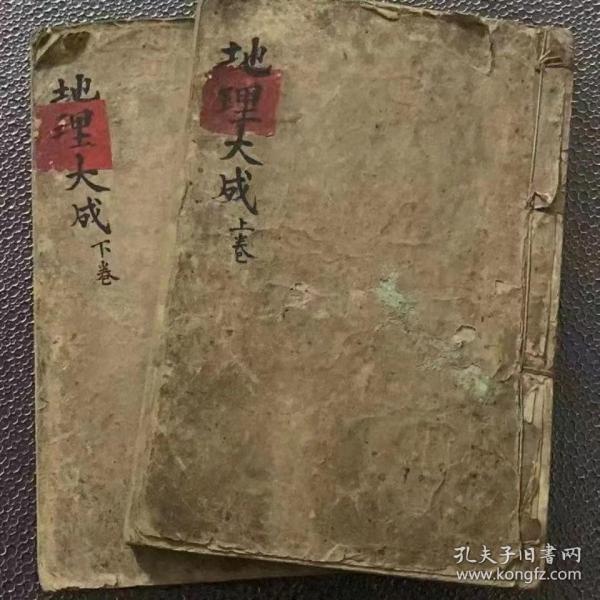 地理大成
上卷
地理大成
下卷
孔夫子旧書网
www.kongfz.com